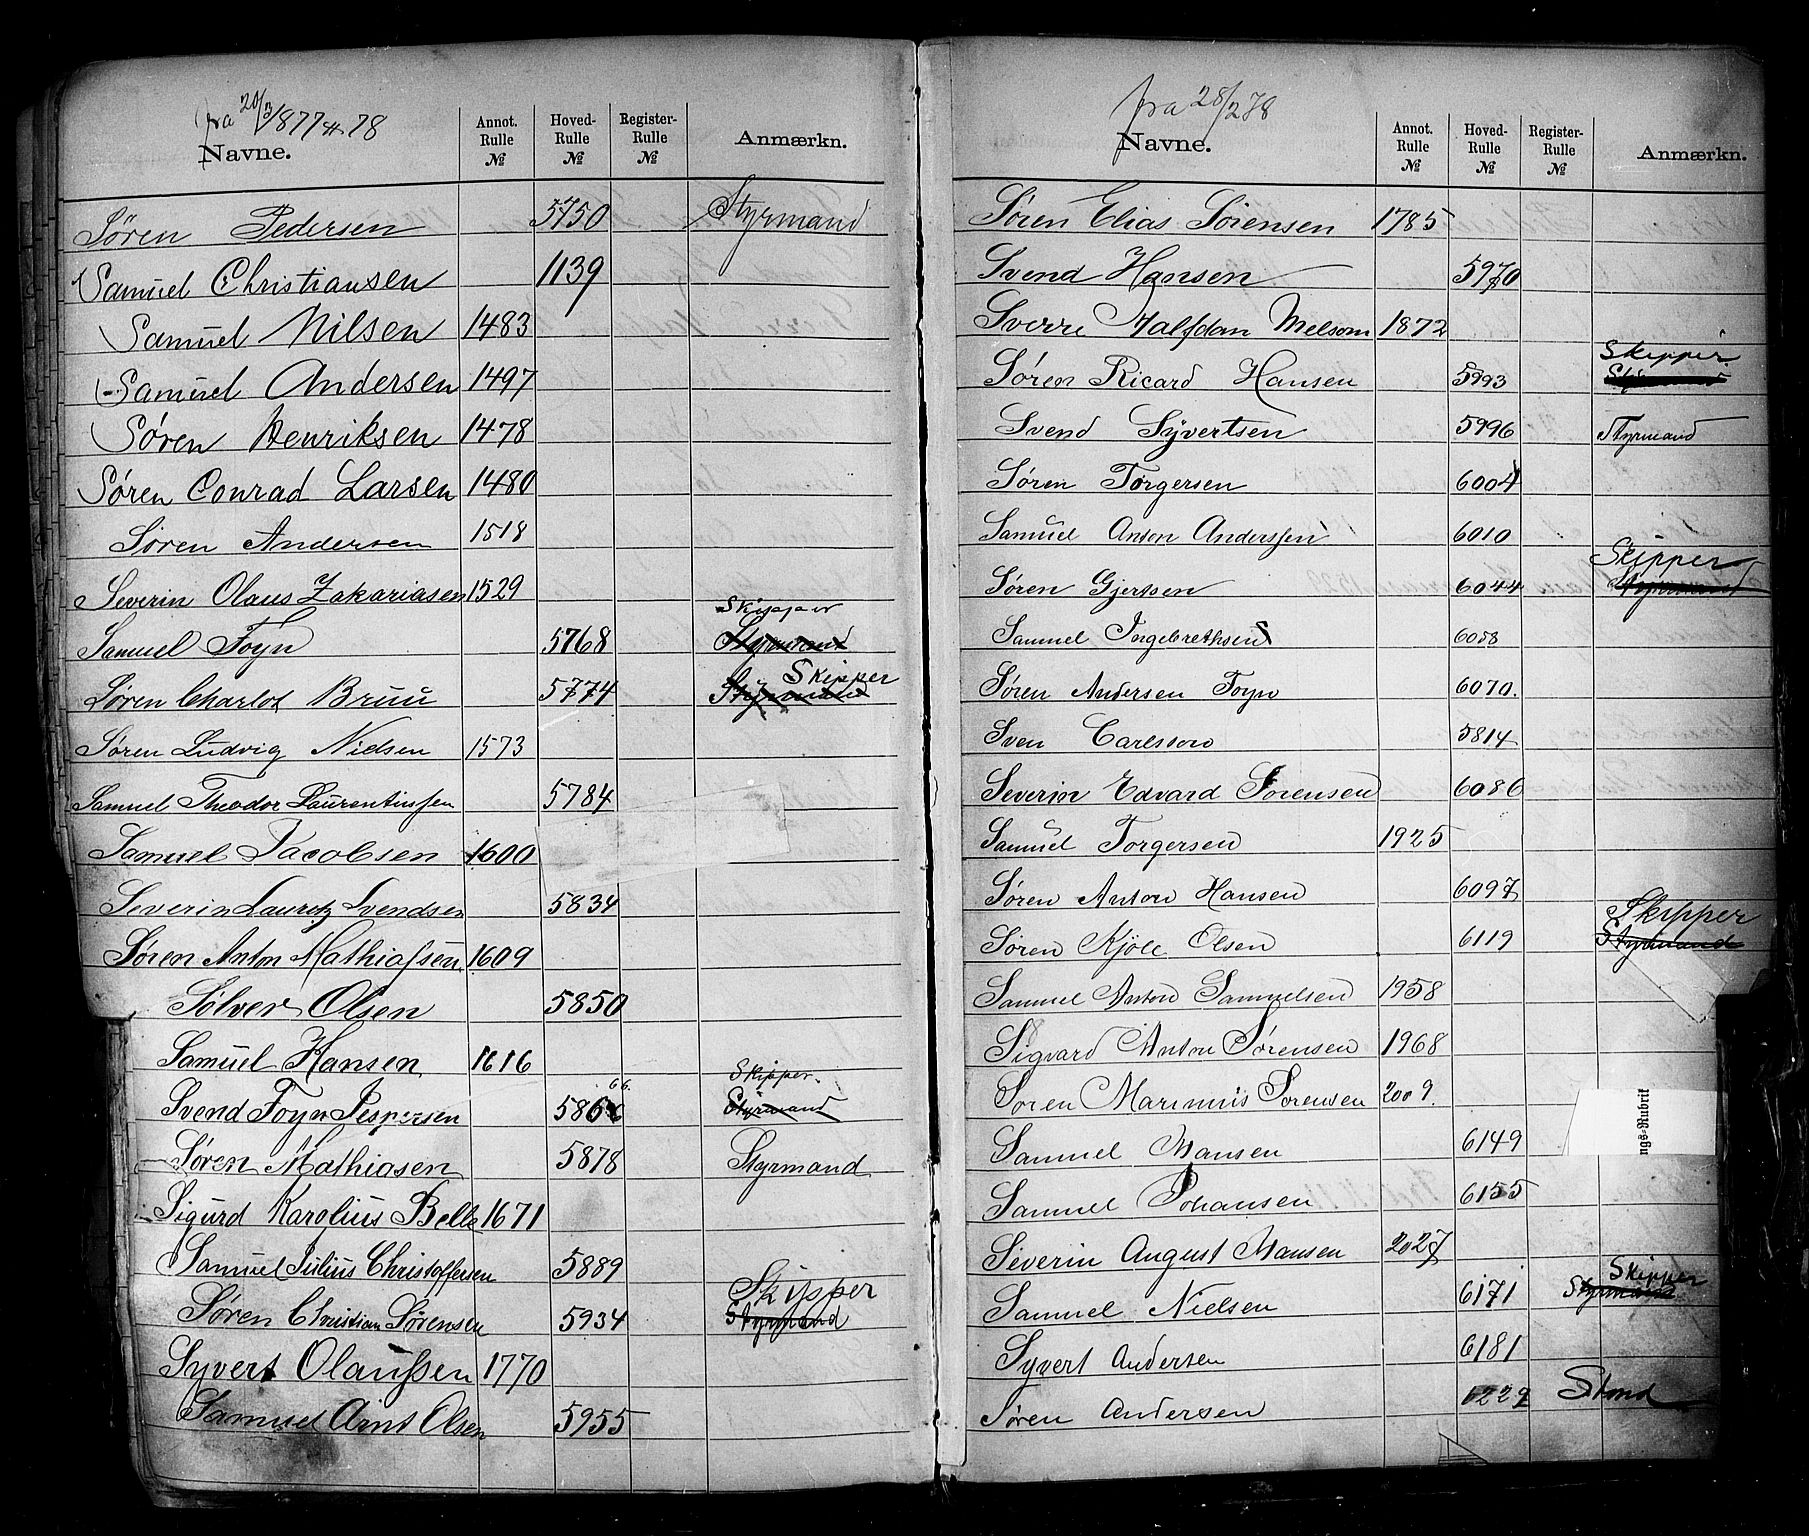 fra 20/3 1877 & 78
Navne. Annot. Rulle № Hoved- Rulle № Register- Rulle № Anmærkn.
Søren Pedersen 5750 Styrmand
Samuel Christiansen 1139
Samuel Nilsen 1483
Samuel Andersen 1497
Søren Henriksen 1478
Søren Conrad Larsen 1480
Søren Andersen 1518
Severin Olaus Zakariasen 1529
Skipper
Samuel Foyn 5768 Styrmand
Skipper
Søren Charlot Bruu 5774 Styrmand
Søren Ludvig Nielsen 1573
Samuel Theodor Laurentiussen 5784
Samuel Jacobsen 1600
Severin Lauritz Svendsen 5834
Søren Anton Mathiassen 1609
Sølver Olsen 5850
Samuel Hansen 1616
66. Skipper.
Svend Foyn Jespersen 586 Styrmand
Søren Mathiasen 5878 Styrmand
Sigurd Karolius Belle 1671
Samuel Julius Christoffersen 5889
Skipper
Søren Christian Sørensen 5934 Styrmand
Syvert Olaussen 1770
Samuel Arnt Olsen 5955
fra 28/2 78
Navne. Annot. Rulle № Hoved- Rulle № Register- Rulle № Anmærkn.
Søren Elias Sørensen 1785
Svend Hansen 5970
Sverre Halfdan Melsom 1872
Skipper
Søren Ricard Hansen 5993 Styrmand
Svend Syvertsen 5996 Styrmand
Søren Torgersen 6004
Samuel Anton Anderssen 6010
Skipper
Søren Gjertsen 6044 Styrmand
Samuel Ingebrethsen 6053
Søren Andersen Foyn 6070.
Sven Carlsson 5814
Severin Edvard Sørensen 6086
Samuel Torgersen 1925
Søren Anton Hansen 6097
Skipper
Søren Kjøle Olsen 6119 Styrmand
Samuel Anton Samuelsen 1958
Sigvard Anton Sørensen 1968
Søren Marinius Sørensen 2009.
ngs-Rubrik
Samuel Hansen 6149
Samuel Johansen 6155
Severin August Hansen 2027
Skipper
Samuel Nielsen 6171 Styrmand
Syvert Andersen 6181
Søren Andersen 6229